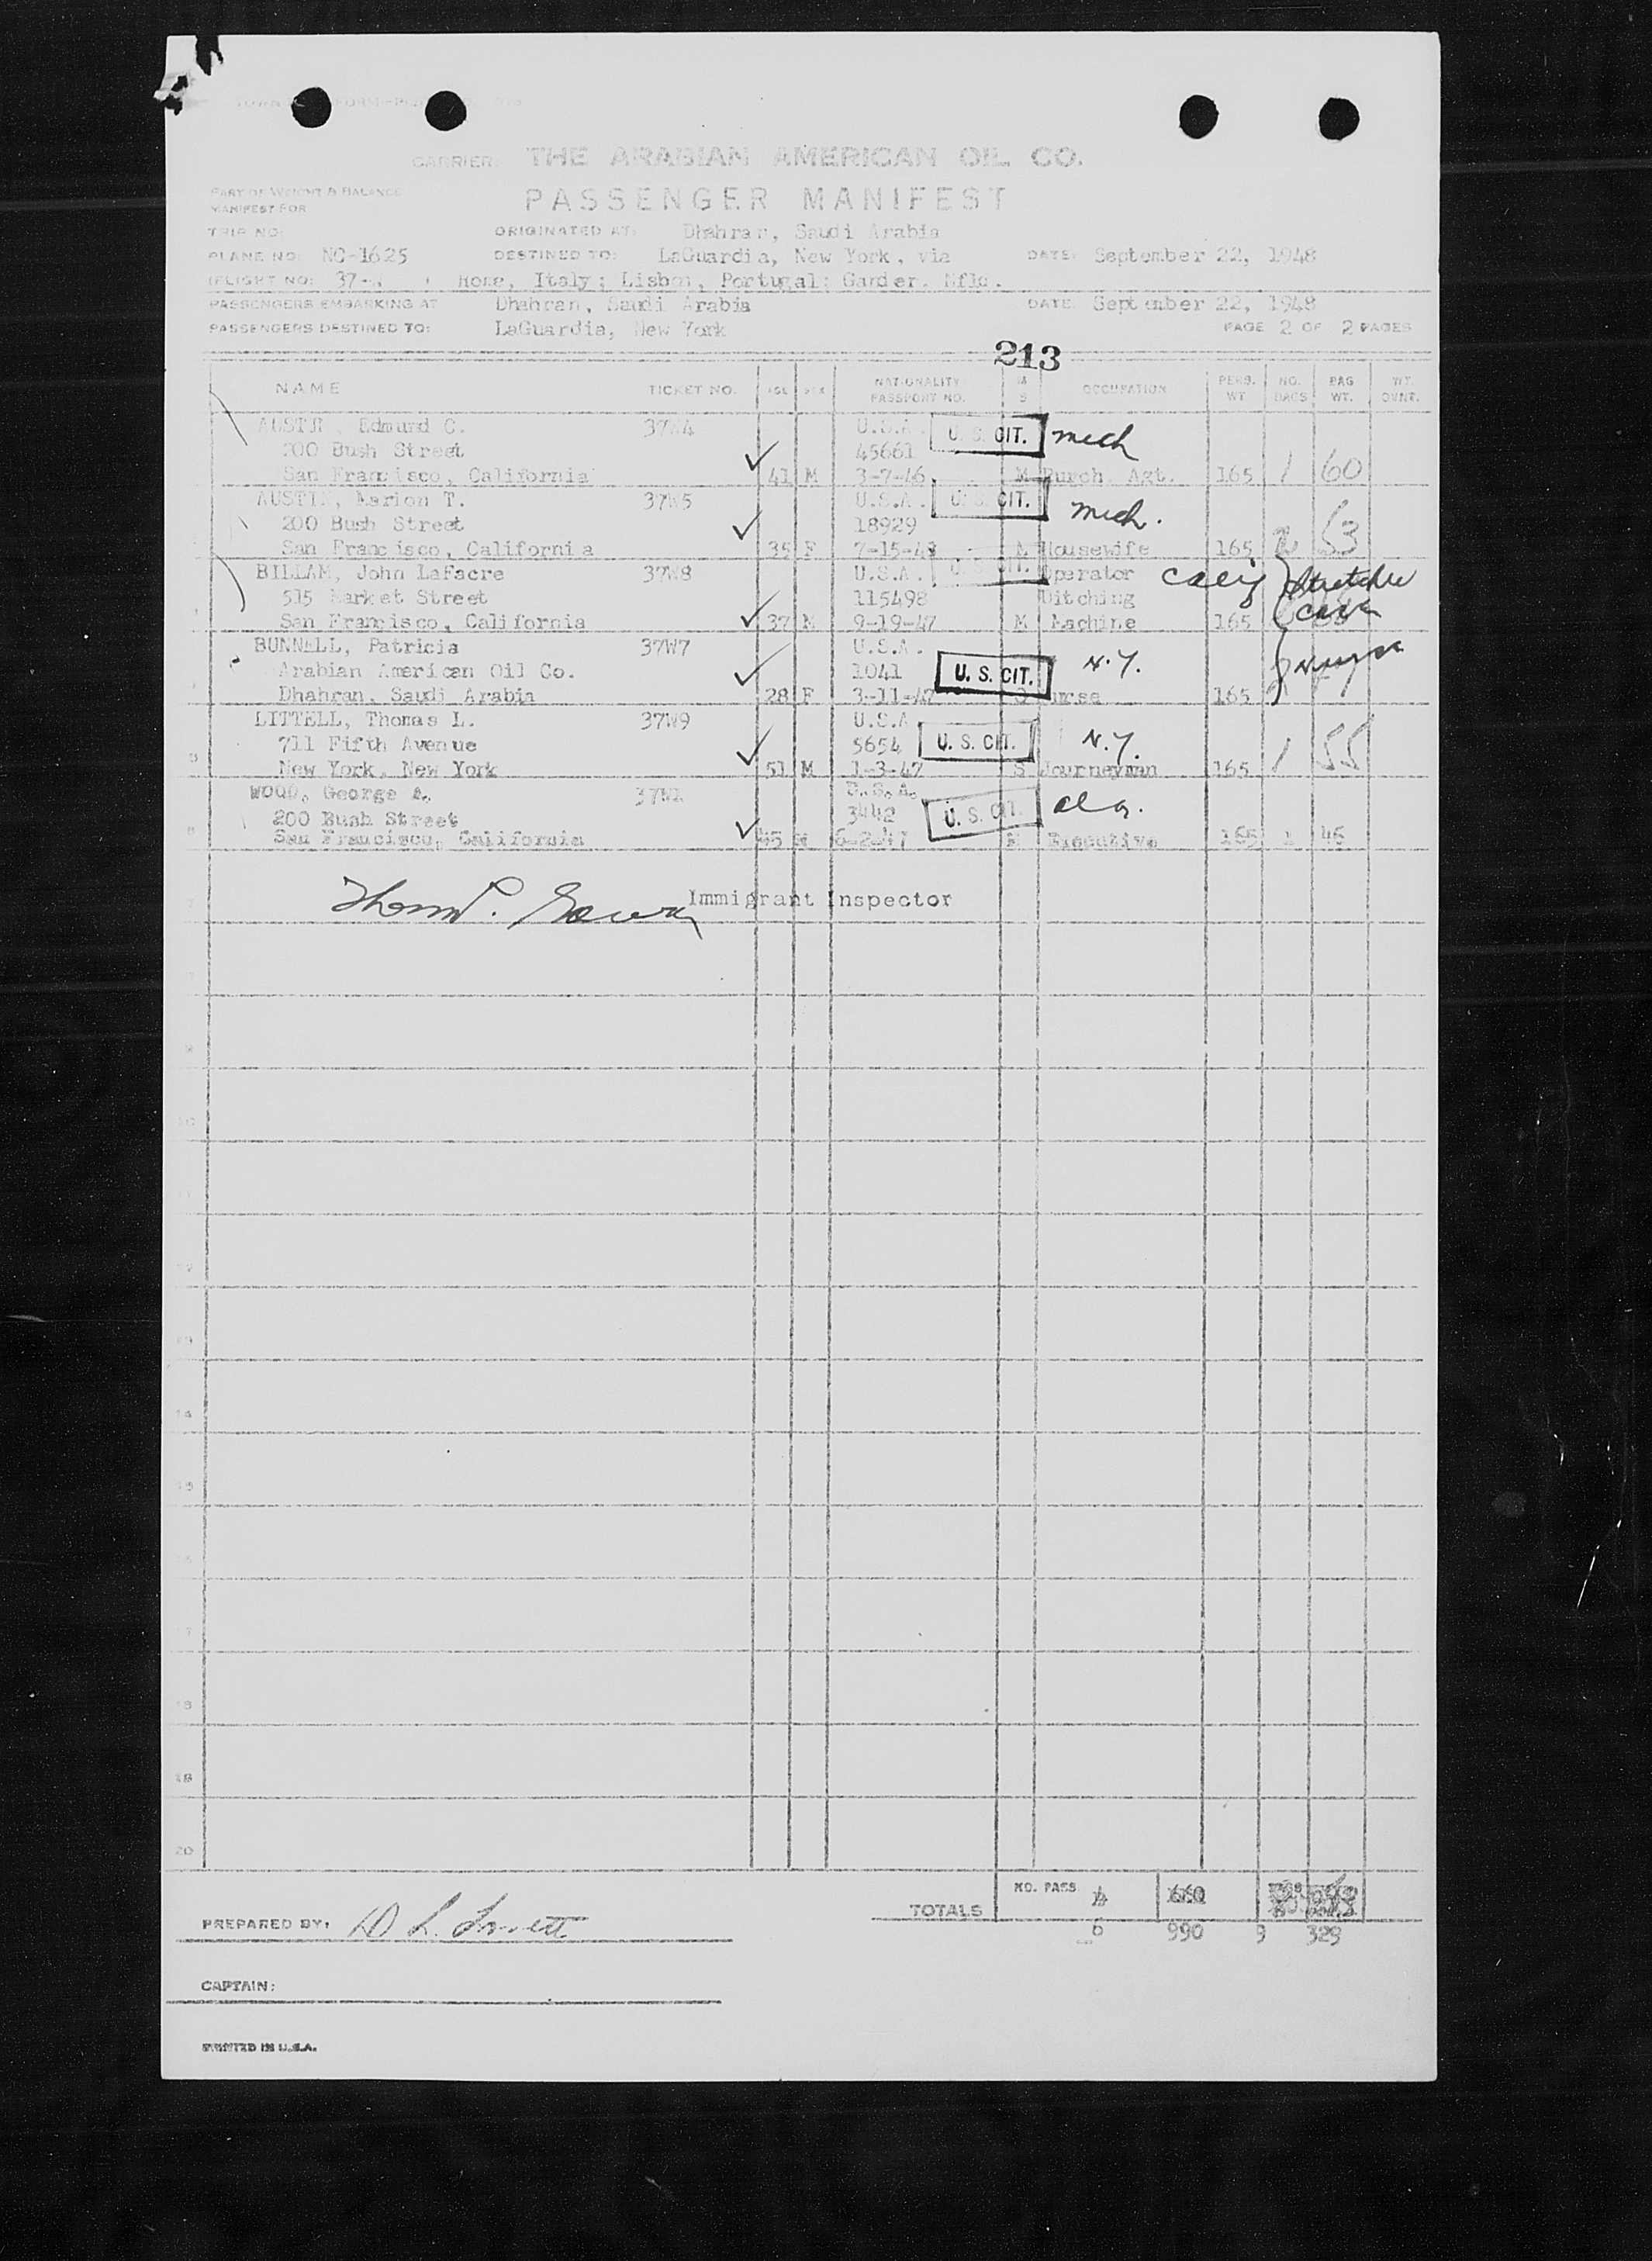 CARRIER: THE ARABIAN AMERICAN OIL CO.
PART OF WEIGHT & BALANCE
MANIFEST FOR
PASSENGER MANIFEST
TRIP NO: ORIGINATED AT: Dhahran, Saudi Arabia
PLANE NO: NC-1625 DESTINED TO: LaGuardia, New York, via DATE: September 22, 1948
(FLIGHT NO: 37-W ) Rome, Italy; Lisbon, Portugal; Gander, Nfld.
PASSENGERS EMBARKING AT Dhahran, Saudi Arabia DATE: September 22, 1948
PASSENGERS DESTINED TO: LaGuardia, New York PAGE 2 OF 2 PAGES
213
NAME TICKET NO. AGE SEX NATIONALITY PASSPORT NO. M S OCCUPATION PERS. WT NO. BAGS BAG WT. WT. OVNT.
AUSTIN, Edmund C. 37W4 U.S.A. U. S. CIT. Mich
200 Bush Street 45661
San Francisco, California 41 M 3-7-46 M Purch. Agt. 165 1 60
AUSTIN, Marion T. 37W5 U.S.A. U. S. CIT. Mich.
200 Bush Street 18929
San Francisco, California 35 F 7-15-43 M Housewife 165 2 63
BILLAM, John LaFacre 37W8 U.S.A. U. S. CIT. Operator Calif Stretcher
515 Market Street 115498 Ditching
San Francisco, California 37 M 9-19-47 M Machine 165 case
BUNNELL, Patricia 37W7 U.S.A.
Arabian American Oil Co. 1041 U. S. CIT. N.Y. nurse
Dhahran, Saudi Arabia 28 F 3-11-47 Nurse 165
LITTELL, Thomas L. 37W9 U.S.A
711 Fifth Avenue 5654 U. S. CIT. N.Y.
New York, New York 51 M 1-3-47 S Journeyman 165 1 55
WOOD, George A. U.S.A.
200 Bush Street 3442 U. S. CIT.
San Francisco, California 45 M 6-2-47 M Executive 165 1 46
Immigrant Inspector
TOTALS NO. PASS. 4 660
PREPARED BY:
6 990 9 329
CAPTAIN:
PRINTED IN U.S.A.